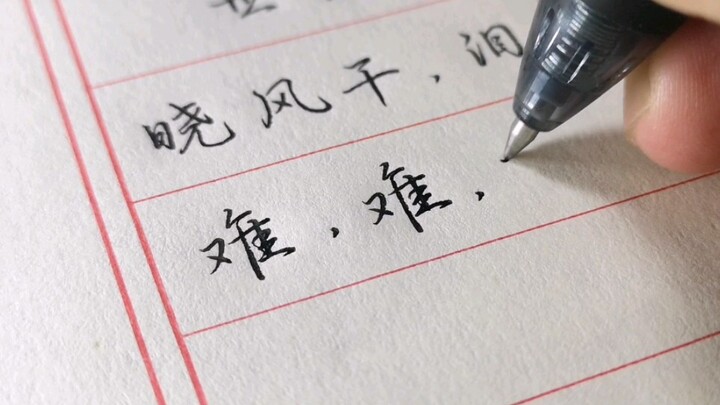 晓风干，泪
难，难，